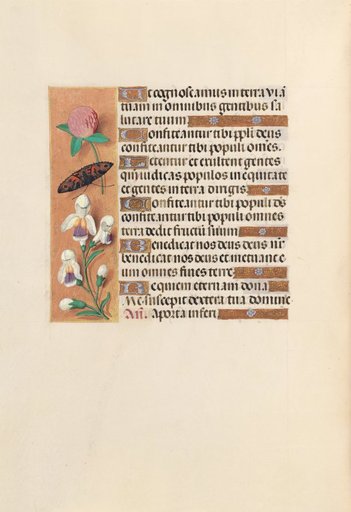 Ut cognoscamus in terra viã
tuam in omnibus gentibus sa
lutare tuum
Confiteantur tibi ppli deus
confiteantur tibi populi omnes.
Letentur et exultent gentes
qm̃ iudicas populos in equitate
et gentes in terra dirigis.
Confiteantur tibi populi ds̃
confiteantur tibi populi omnes
terra dedit fructũ suum
Benedicat nos deus deus nr̃
benedicat nos deus et metuant e
um omnes fines terre
Requiem eternam dona
Me suscepit dextera tua domine
Añ. A porta inferi